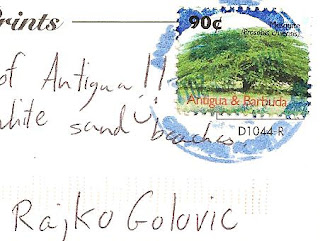 Prints
90¢
Mesquite
of Antigua!!
white sand beaches
Antigua & Barbuda
D1044-R
Rajko Golovic